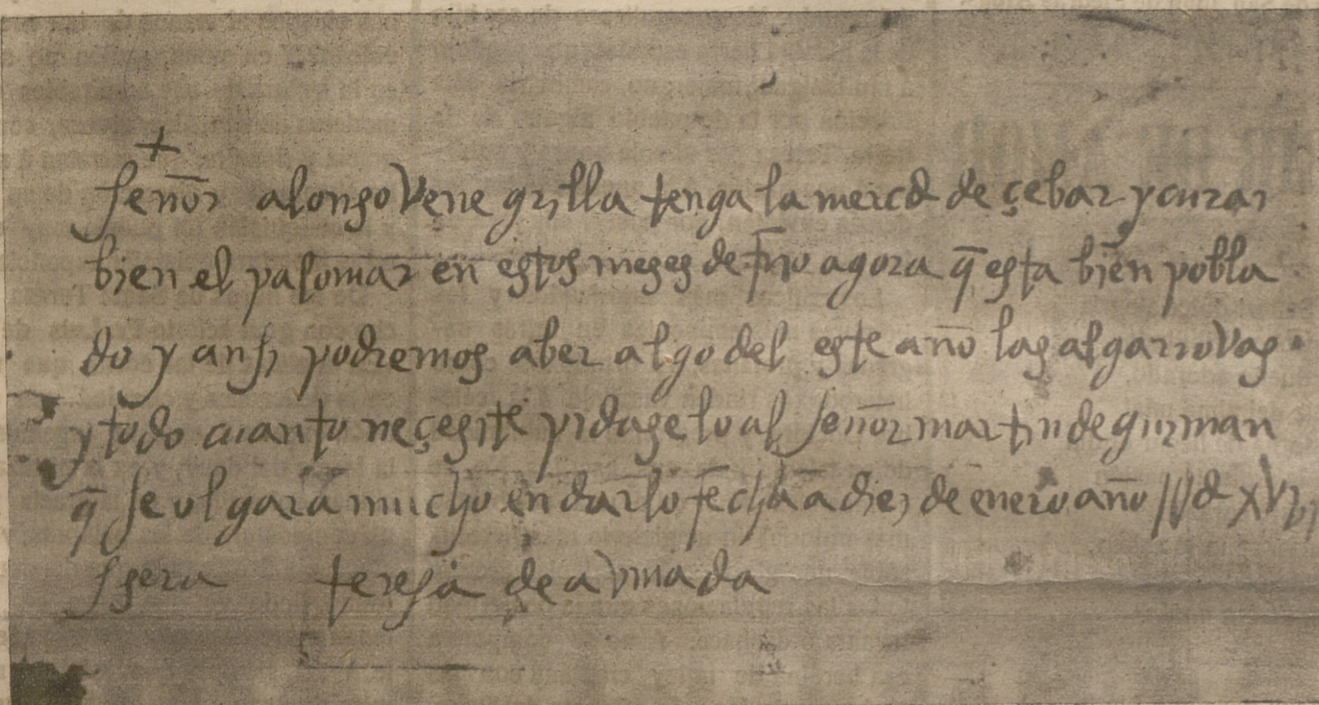 +
señor alonso Venegrilla tenga la merced de çebar y curar
bien el palomar en estos meses de frio agora q̃ esta bien pobla
do y ansi podremos aber algo del este año las algarroVas
y todo cuanto neçesite pidaselo al señor martin de guzman
q̃ se olgara mucho en darlo fecha a diez de enero año
teresa de aVmada